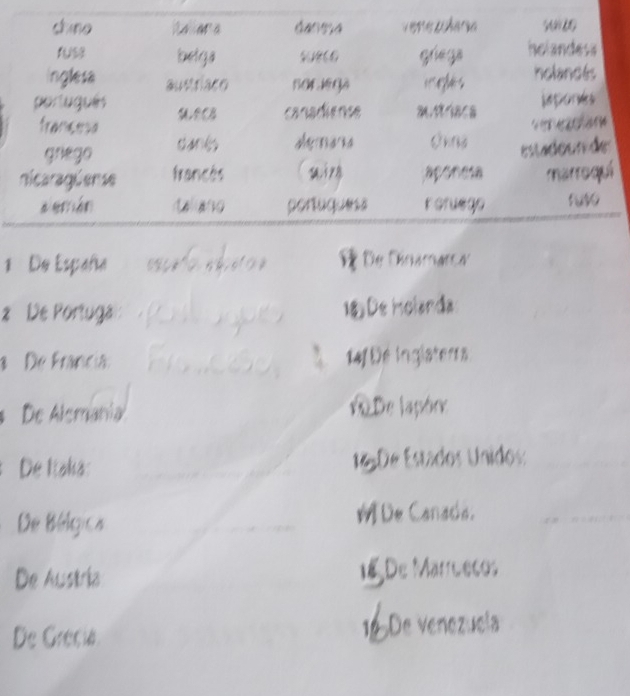 chino italiana danesa venezolana suizo
rusa belga sueco griega holandesa
inglesa austríaco noruega inglés holandés
portugués sueca canadiense austríaca japonés
francesa danés alemana china venezolano
griego estadounidense
nicaragüense francés suiza japonesa marroquí
alemán italiano portuguesa noruego ruso
1 De España
De Dinamarca
2 De Portugal:
De Holanda
3 De Francia:
14 De Inglaterra
De Alemania
De Japón:
De Italia:
16 De Estados Unidos:
De Bélgica
De Canadá:
De Austria
18 De Marruecos
De Grecia
De Venezuela